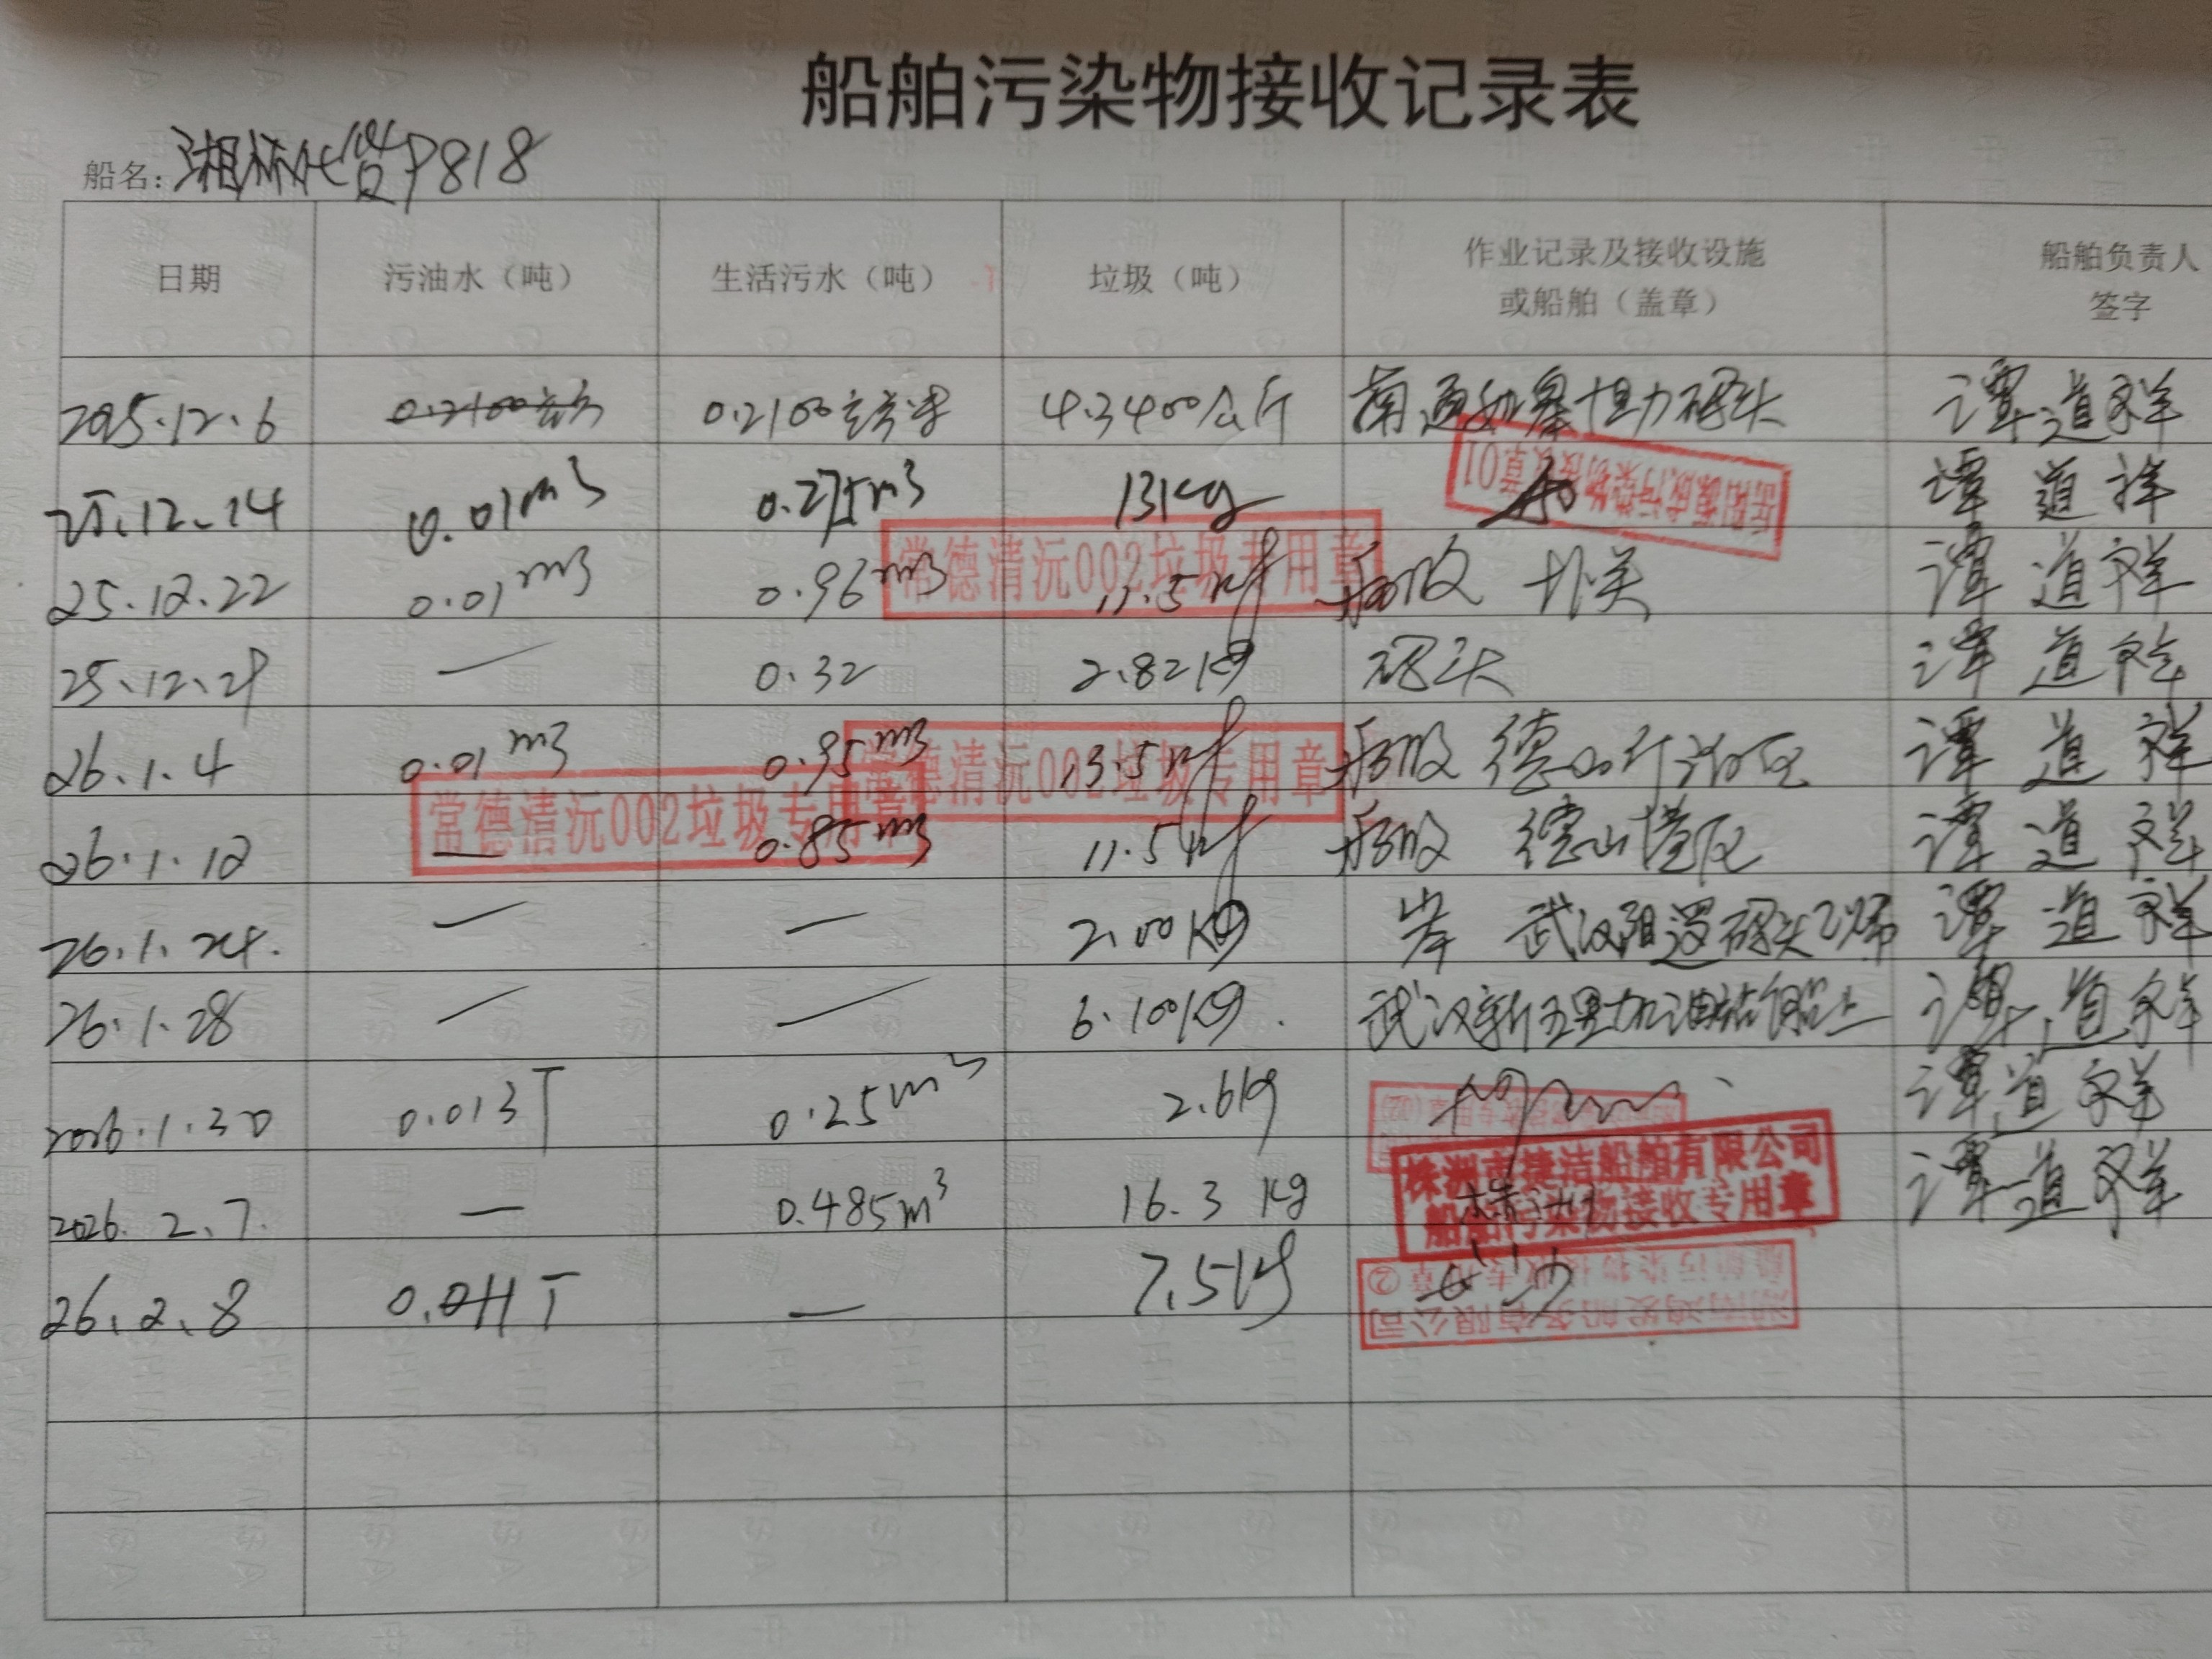 船舶污染物接收记录表
船名：湘林代货P818
日期 污油水（吨） 生活污水（吨） 垃圾（吨） 作业记录及接收设施或船舶（盖章） 船舶负责人签字
2025.12.6 0.2100 0.2100立方米 4.3400公斤 南通 恒力码头 谭道祥
25.12.14 0.01m3 0.275m3 13Kg 船 谭道祥
25.12.22 0.01m3 0.96m3 11.5kg 船收 北关 谭道祥
常德清沅002垃圾专用章
25.12.29 — 0.32 2.82Kg 码头 谭道祥
26.1.4 0.01m3 0.95m3 13.5kg 船收 德山 谭道祥
常德清沅002垃圾专用章
26.1.12 — 0.85m3 11.5kg 船收 德山港区 谭道祥
常德清沅002垃圾专用章
26.1.24. — — 2.00Kg 岸 武汉阳逻码头 谭道祥
26.1.28 — — 6.100Kg. 武汉新五里加油站船上 谭道祥
2026.1.30 0.013T 0.25m3 2.6Kg 谭道祥
2026.2.7. — 0.485m3 16.3 Kg 株洲 谭道祥
株洲市捷洁船舶有限公司
船舶污染物接收专用章
26.2.8 0.011T — 7.5Kg 长沙